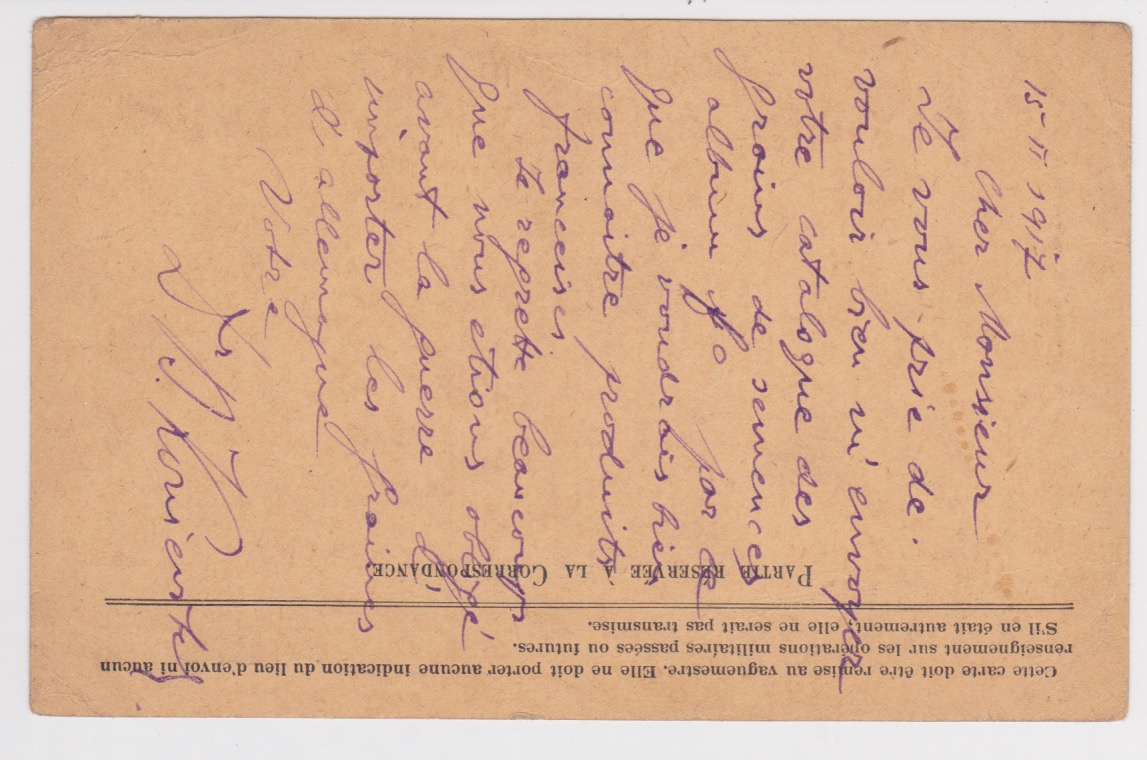 Cette carte doit être remise au vaguemestre. Elle ne doit porter aucune indication du lieu d'envoi ni aucun
renseignement sur les opérations militaires passées ou futures.
S'il en était autrement, elle ne serait pas transmise.
PARTIE RÉSERVÉE A LA CORRESPONDANCE
15 II 1917
Cher Monsieur
Je vous prie de.
vouloir bien m'envoyer
votre catalogue des
graines de semences
album
que je voudrais bien
connaitre produits
francais
Je regrette beaucoup
que nous étions obligé
avant la guerre d'
importer les graines
d'allemagne
Votre
Dr